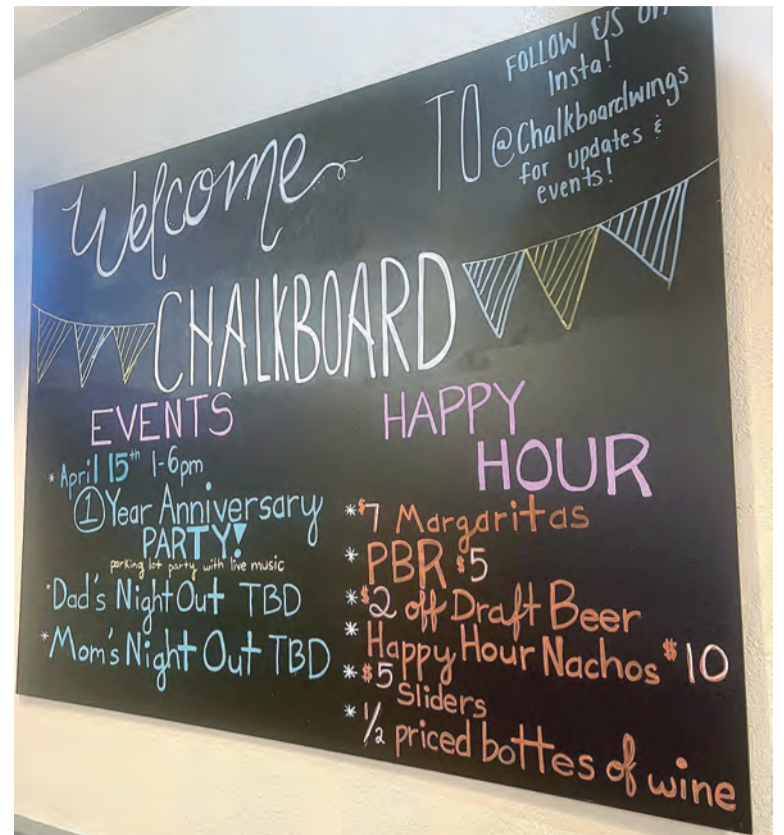 Welcome TO
CHALKBOARD
FOLLOW US ON
Insta!
@Chalkboardwings
for updates &
events!
EVENTS
* April 15th 1-6pm
1 Year Anniversary
PARTY!
parking lot party with live music
* Dad's Night Out TBD
* Mom's Night Out TBD
HAPPY
HOUR
* $7 Margaritas
* PBR $5
* $2 off Draft Beer
* Happy Hour Nachos $10
* $5 Sliders
* 1/2 priced bottes of wine